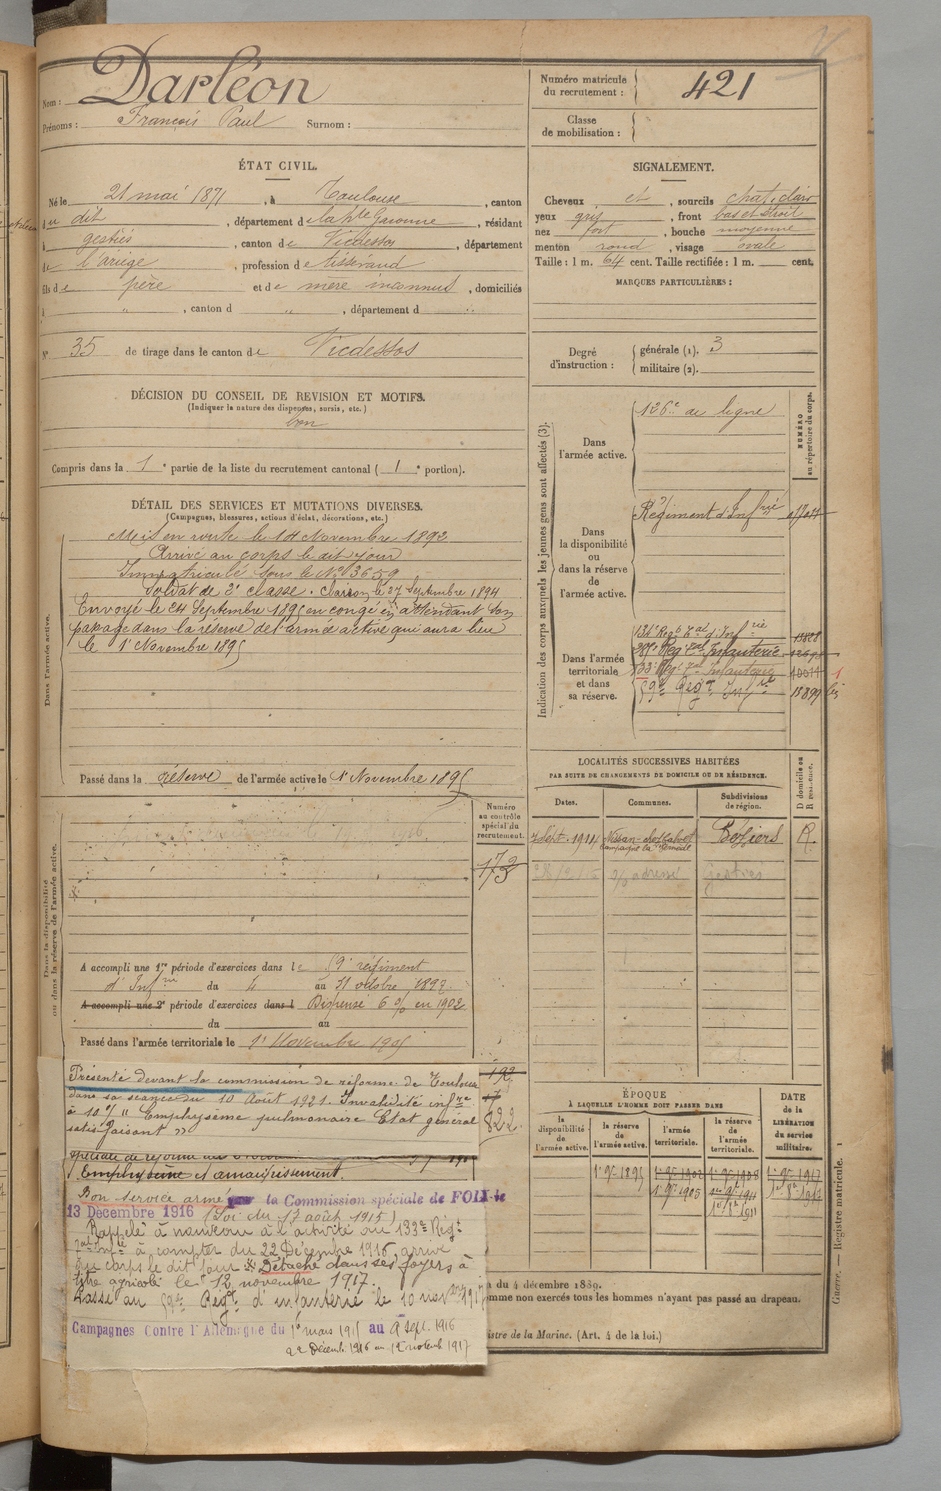 Nom : Darléon
Prénoms : François Paul Surnom :
ÉTAT CIVIL.
Né le 21 mai 1871, à Toulouse, canton
du dit, département de la hte Garonne, résidant
à gestiès, canton de Vicdessos, département
de l'ariège, profession de tisserand
fils de père et de mere inconnus, domiciliés
à " , canton d " , département d "
N° 35 de tirage dans le canton de Vicdessos
DÉCISION DU CONSEIL DE REVISION ET MOTIFS.
(Indiquer la nature des dispenses, sursis, etc.)
bon
Compris dans la 1e partie de la liste du recrutement cantonal ( 1e portion).
DÉTAIL DES SERVICES ET MUTATIONS DIVERSES.
(Campagnes, blessures, actions d'éclat, décorations, etc.)
Dans l'armée active.
Mis en route le 14 Novembre 1892
Arrivé au corps le dit jour
Immatriculé sous le N° 3659
Soldat de 2e classe. Clairon le 27 Septembre 1894
Envoyé le 24 Septembre 1895 en congé en attendant son
passage dans la réserve de l'armée active qui aura lieu
le 1er Novembre 1895
Passé dans la réserve de l'armée active le 1er Novembre 1895
Dans la disponibilité
ou dans la réserve de l'armée active.
Numéro
au contrôle
spécial du
recrutement.
173
A accompli une 1re période d'exercices dans le 59e régiment
d'Infrie du 4 au 31 octobre 1897
A accompli une 2e période d'exercices dans l Dispensé 6 % en 1902
du au
Passé dans l'armée territoriale le 1er Novembre 1905
192
822
Présenté devant la commission de réforme de Toulouse
dans sa séance du 10 Août 1921. Invalidité infre
à 10 % " Emphysème pulmonaire Etat général
satisfaisant "
Emphysème et amaigrissement.
Bon service armé par la Commission spéciale de FOIX le
13 Décembre 1916 (Loi du 17 août 1915)
Rappelé à nouveau à l'activité au 133e Régt
à compter du 22 Décembre 1916, arrivé
au corps le dit jour. Détaché dans ses foyers à
titre agricole le 12 novembre 1917.
Passé au 59e Régt d'infanterie le 10 novbre 1917
Campagnes Contre l'Allemagne du 1er mars 1915 au 9 sept. 1916
22 Décemb. 1916 au 12 novemb 1917
Numéro matricule
du recrutement : 421
Classe
de mobilisation :
SIGNALEMENT.
Cheveux et, sourcils chat. clair
yeux gris, front bas et droit
nez fort, bouche moyenne
menton rond, visage ovale
Taille : 1 m. 64 cent. Taille rectifiée : 1 m. cent.
MARQUES PARTICULIÈRES :
Degré
d'instruction :
générale (1). 3
militaire (2).
Indication des corps auxquels les jeunes gens sont affectés (3).
NUMÉRO
au répertoire du corps.
Dans
l'armée active.
126e de ligne
Dans
la disponibilité
ou
dans la réserve
de
l'armée active.
Régiment d'Infrie
Dans l'armée
territoriale
et dans
sa réserve.
132e Regt Tal d'Infrie
Regt Tal Infanterie
133e Regt Tal Infanterie
59e Regt Infie 18899 bis
LOCALITÉS SUCCESSIVES HABITÉES
PAR SUITE DE CHANGEMENTS DE DOMICILE OU DE RÉSIDENCE.
Dates. Communes. Subdivisions
de région.
D domicile ou
R résidence.
7 Sept. 1914 Nissan Béziers R.
Gestiès
ÉPOQUE
À LAQUELLE L'HOMME DOIT PASSER DANS
la
disponibilité
de
l'armée
active.
la réserve
de
l'armée active.
l'armée
territoriale.
la réserve
de
l'armée
territoriale.
DATE
de la
LIBÉRATION
du service
militaire.
1er 9bre 1895 1er 9bre 1905
du 4 décembre 1889.
mme non exercés tous les hommes n'ayant pas passé au drapeau.
istre de la Marine. (Art. 4 de la loi.)
Guerre. — Registre matricule.